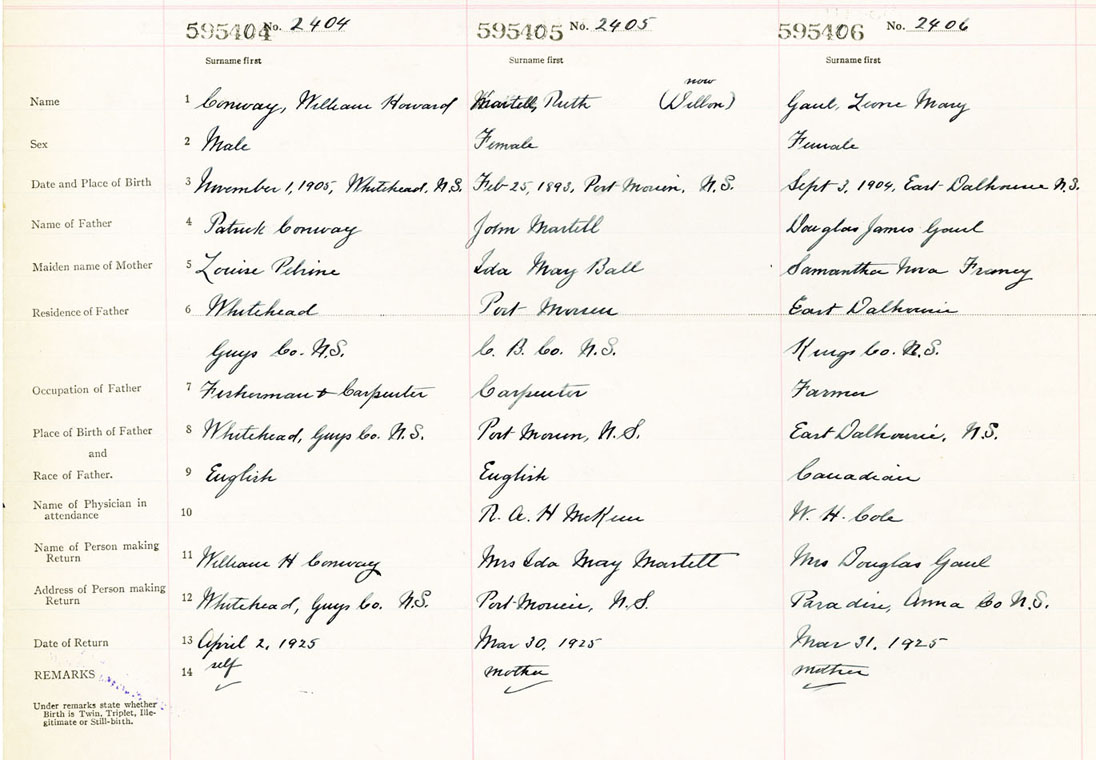 595404 No. 2404 595405 No. 2405 595406 No. 2406
Surname first Surname first Surname first
now
Name 1 Conway, William Howard Martell, Ruth (Dillon) Gaul, Leone Mary
Sex 2 Male Female Female
Date and Place of Birth 3 November 1, 1905, Whitehead, N.S. Feb 25, 1893, Port Morien, N.S. Sept 3, 1904, East Dalhousie N.S.
Name of Father 4 Patrick Conway John Martell Douglas James Gaul
Maiden name of Mother 5 Louise Pelrine Ida May Ball Samantha Nova Franey
Residence of Father 6 Whitehead Port Morien East Dalhousie
Guys Co. N.S. C. B. Co. N.S. Kings Co. N.S.
Occupation of Father 7 Fisherman & Carpenter Carpenter Farmer
Place of Birth of Father 8 Whitehead, Guys Co. N.S. Port Morien, N.S. East Dalhousie, N.S.
and
Race of Father. 9 English English Canadian
Name of Physician in
attendance 10 R. A. H McKeen W. H. Cole
Name of Person making
Return 11 William H Conway Mrs Ida May Martell Mrs Douglas Gaul
Address of Person making
Return 12 Whitehead, Guys Co. N.S. Port Morien, N.S. Paradise, Anna Co N.S.
Date of Return 13 April 2, 1925 Mar 30, 1925 Mar 31, 1925
REMARKS 14 self mother mother
Under remarks state whether
Birth is Twin, Triplet, Ille-
gitimate or Still-birth.